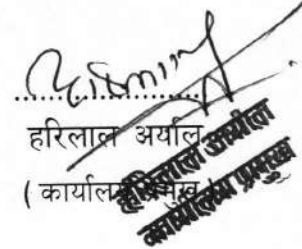 हरिलाल अर्याल
( कार्यालय प्रमुख )
हरिलाल अर्याल
कार्यालय प्रमुख